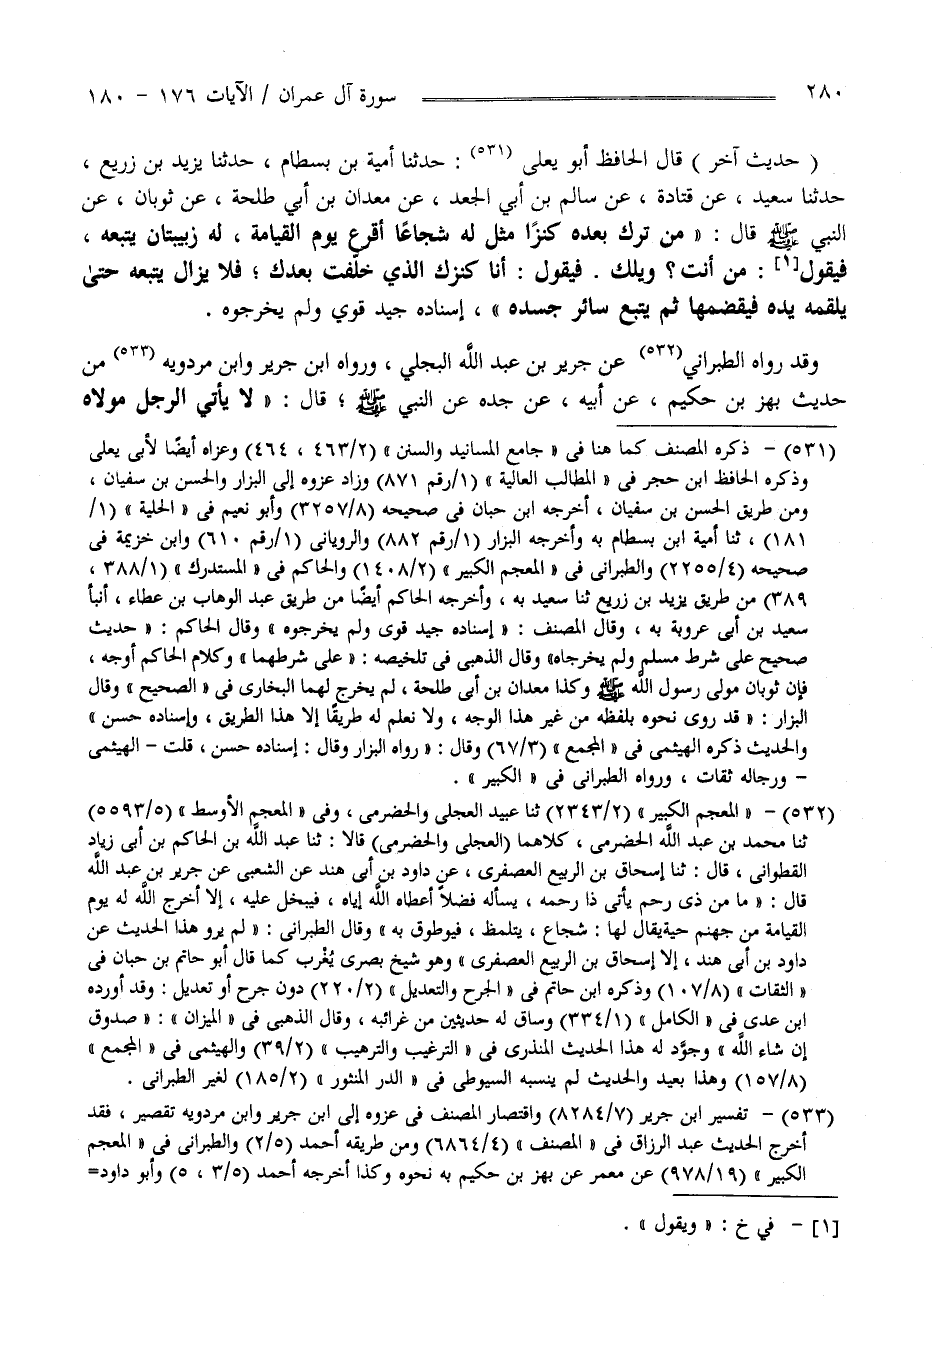 ٢٨٠ سورة آل عمران / الآيات ١٧٦ - ١٨٠
( حديث آخر ) قال الحافظ أبو يعلى (٥٣١) : حدثنا أمية بن بسطام ، حدثنا يزيد بن زريع ،
حدثنا سعيد ، عن قتادة ، عن سالم بن أبي الجعد ، عن معدان بن أبي طلحة ، عن ثوبان ، عن
النبي ﷺ قال : « من ترك بعده كنزًا مثل له شجاعًا أقرع يوم القيامة ، له زبيبتان يتبعه ،
فيقول[١] : من أنت؟ ويلك . فيقول : أنا كنزك الذي خلّفت بعدك ؛ فلا يزال يتبعه حتىٰ
يلقمه يده فيقضمها ثم يتبع سائر جسده » ، إسناده جيد قوي ولم يخرجوه .
وقد رواه الطبراني(٥٣٢) عن جرير بن عبد اللَّه البجلي ، ورواه ابن جرير وابن مردويه (٥٣٣) من
حديث بهز بن حكيم ، عن أبيه ، عن جده عن النبي ﷺ ؛ قال : « لا يأتي الرجل مولاه
(٥٣١) - ذكره المصنف كما هنا فى « جامع المسانيد والسنن » (٤٦٣/٢ ، ٤٦٤) وعزاه أيضًا لأبى يعلى
وذكره الحافظ ابن حجر فى « المطالب العالية » (١/رقم ٨٧١) وزاد عزوه إلى البزار والحسن بن سفيان ،
ومن طريق الحسن بن سفيان ، أخرجه ابن حبان فى صحيحه (٣٢٥٧/٨) وأبو نعيم فى « الحلية » (١/
١٨١) ، ثنا أمية ابن بسطام به وأخرجه البزار (١/رقم ٨٨٢) والرويانى (١/رقم ٦١٠) وابن خزيمة فى
صحيحه (٢٢٥٥/٤) والطبرانى فى « المعجم الكبير » (١٤٠٨/٢) والحاكم فى « المستدرك » (٣٨٨/١ ،
٣٨٩) من طريق يزيد بن زريع ثنا سعيد به ، وأخرجه الحاكم أيضًا من طريق عبد الوهاب بن عطاء ، أنبأ
سعيد بن أبى عروبة به ، وقال المصنف : « إسناده جيد قوى ولم يخرجوه » وقال الحاكم : « حديث
صحيح على شرط مسلم ولم يخرجاه» وقال الذهبى فى تلخيصه : « على شرطهما » وكلام الحاكم أوجه ،
فإن ثوبان مولى رسول اللَّه ﷺ وكذا معدان بن أبى طلحة ، لم يخرج لهما البخارى فى « الصحيح » وقال
البزار : « قد روى نحوه بلفظه من غير هذا الوجه ، ولا نعلم له طريقًا إلا هذا الطريق ، وإسناده حسن »
والحديث ذكره الهيثمى فى « المجمع » (٦٧/٣) وقال : « رواه البزار وقال : إسناده حسن ، قلت - الهيثمى
- ورجاله ثقات ، ورواه الطبرانى فى « الكبير » .
(٥٣٢) - « المعجم الكبير » (٢٣٤٣/٢) ثنا عبيد العجلى والحضرمى ، وفى « المعجم الأوسط » (٥٥٩٣/٥)
ثنا محمد بن عبد اللَّه الحضرمى ، كلاهما (العجلى والحضرمى) قالا : ثنا عبد اللَّه بن الحاكم بن أبى زياد
القطوانى ، قال : ثنا إسحاق بن الربيع العصفرى ، عن داود بن أبى هند عن الشعبى عن جرير بن عبد اللَّه
قال : « ما من ذى رحم يأتى ذا رحمه ، يسأله فضلاً أعطاه اللَّه إياه ، فيبخل عليه ، إلا أخرج اللَّه له يوم
القيامة من جهنم حيةيقال لها : شجاع ، يتلمظ ، فيوطوق به » وقال الطبرانى : « لم يرو هذا الحديث عن
داود بن أبى هند ، إلا إسحاق بن الربيع العصفرى » وهو شيخ بصرى يُغْرب كما قال أبو حاتم بن حبان فى
« الثقات » (١٠٧/٨) وذكره ابن حاتم فى « الجرح والتعديل » (٢٢٠/٢) دون جرح أو تعديل : وقد أورده
ابن عدى فى « الكامل » (٣٣٤/١) وساق له حديثين من غرائبه ، وقال الذهبى فى « الميزان » : « صدوق
إن شاء اللَّه » وجوَّد له هذا الحديث المنذرى فى « الترغيب والترهيب » (٣٩/٢) والهيثمى فى « المجمع »
(١٥٧/٨) وهذا بعيد والحديث لم ينسبه السيوطى فى « الدر المنثور » (١٨٥/٢) لغير الطبرانى .
(٥٣٣) - تفسير ابن جرير (٨٢٨٤/٧) واقتصار المصنف فى عزوه إلى ابن جرير وابن مردويه تقصير ، فقد
أخرج الحديث عبد الرزاق فى « المصنف » (٦٨٦٤/٤) ومن طريقه أحمد (٢/٥) والطبرانى فى « المعجم
الكبير » (٩٧٨/١٩) عن معمر عن بهز بن حكيم به نحوه وكذا أخرجه أحمد (٣/٥ ، ٥) وأبو داود=
[١] - في خ : « ويقول » .